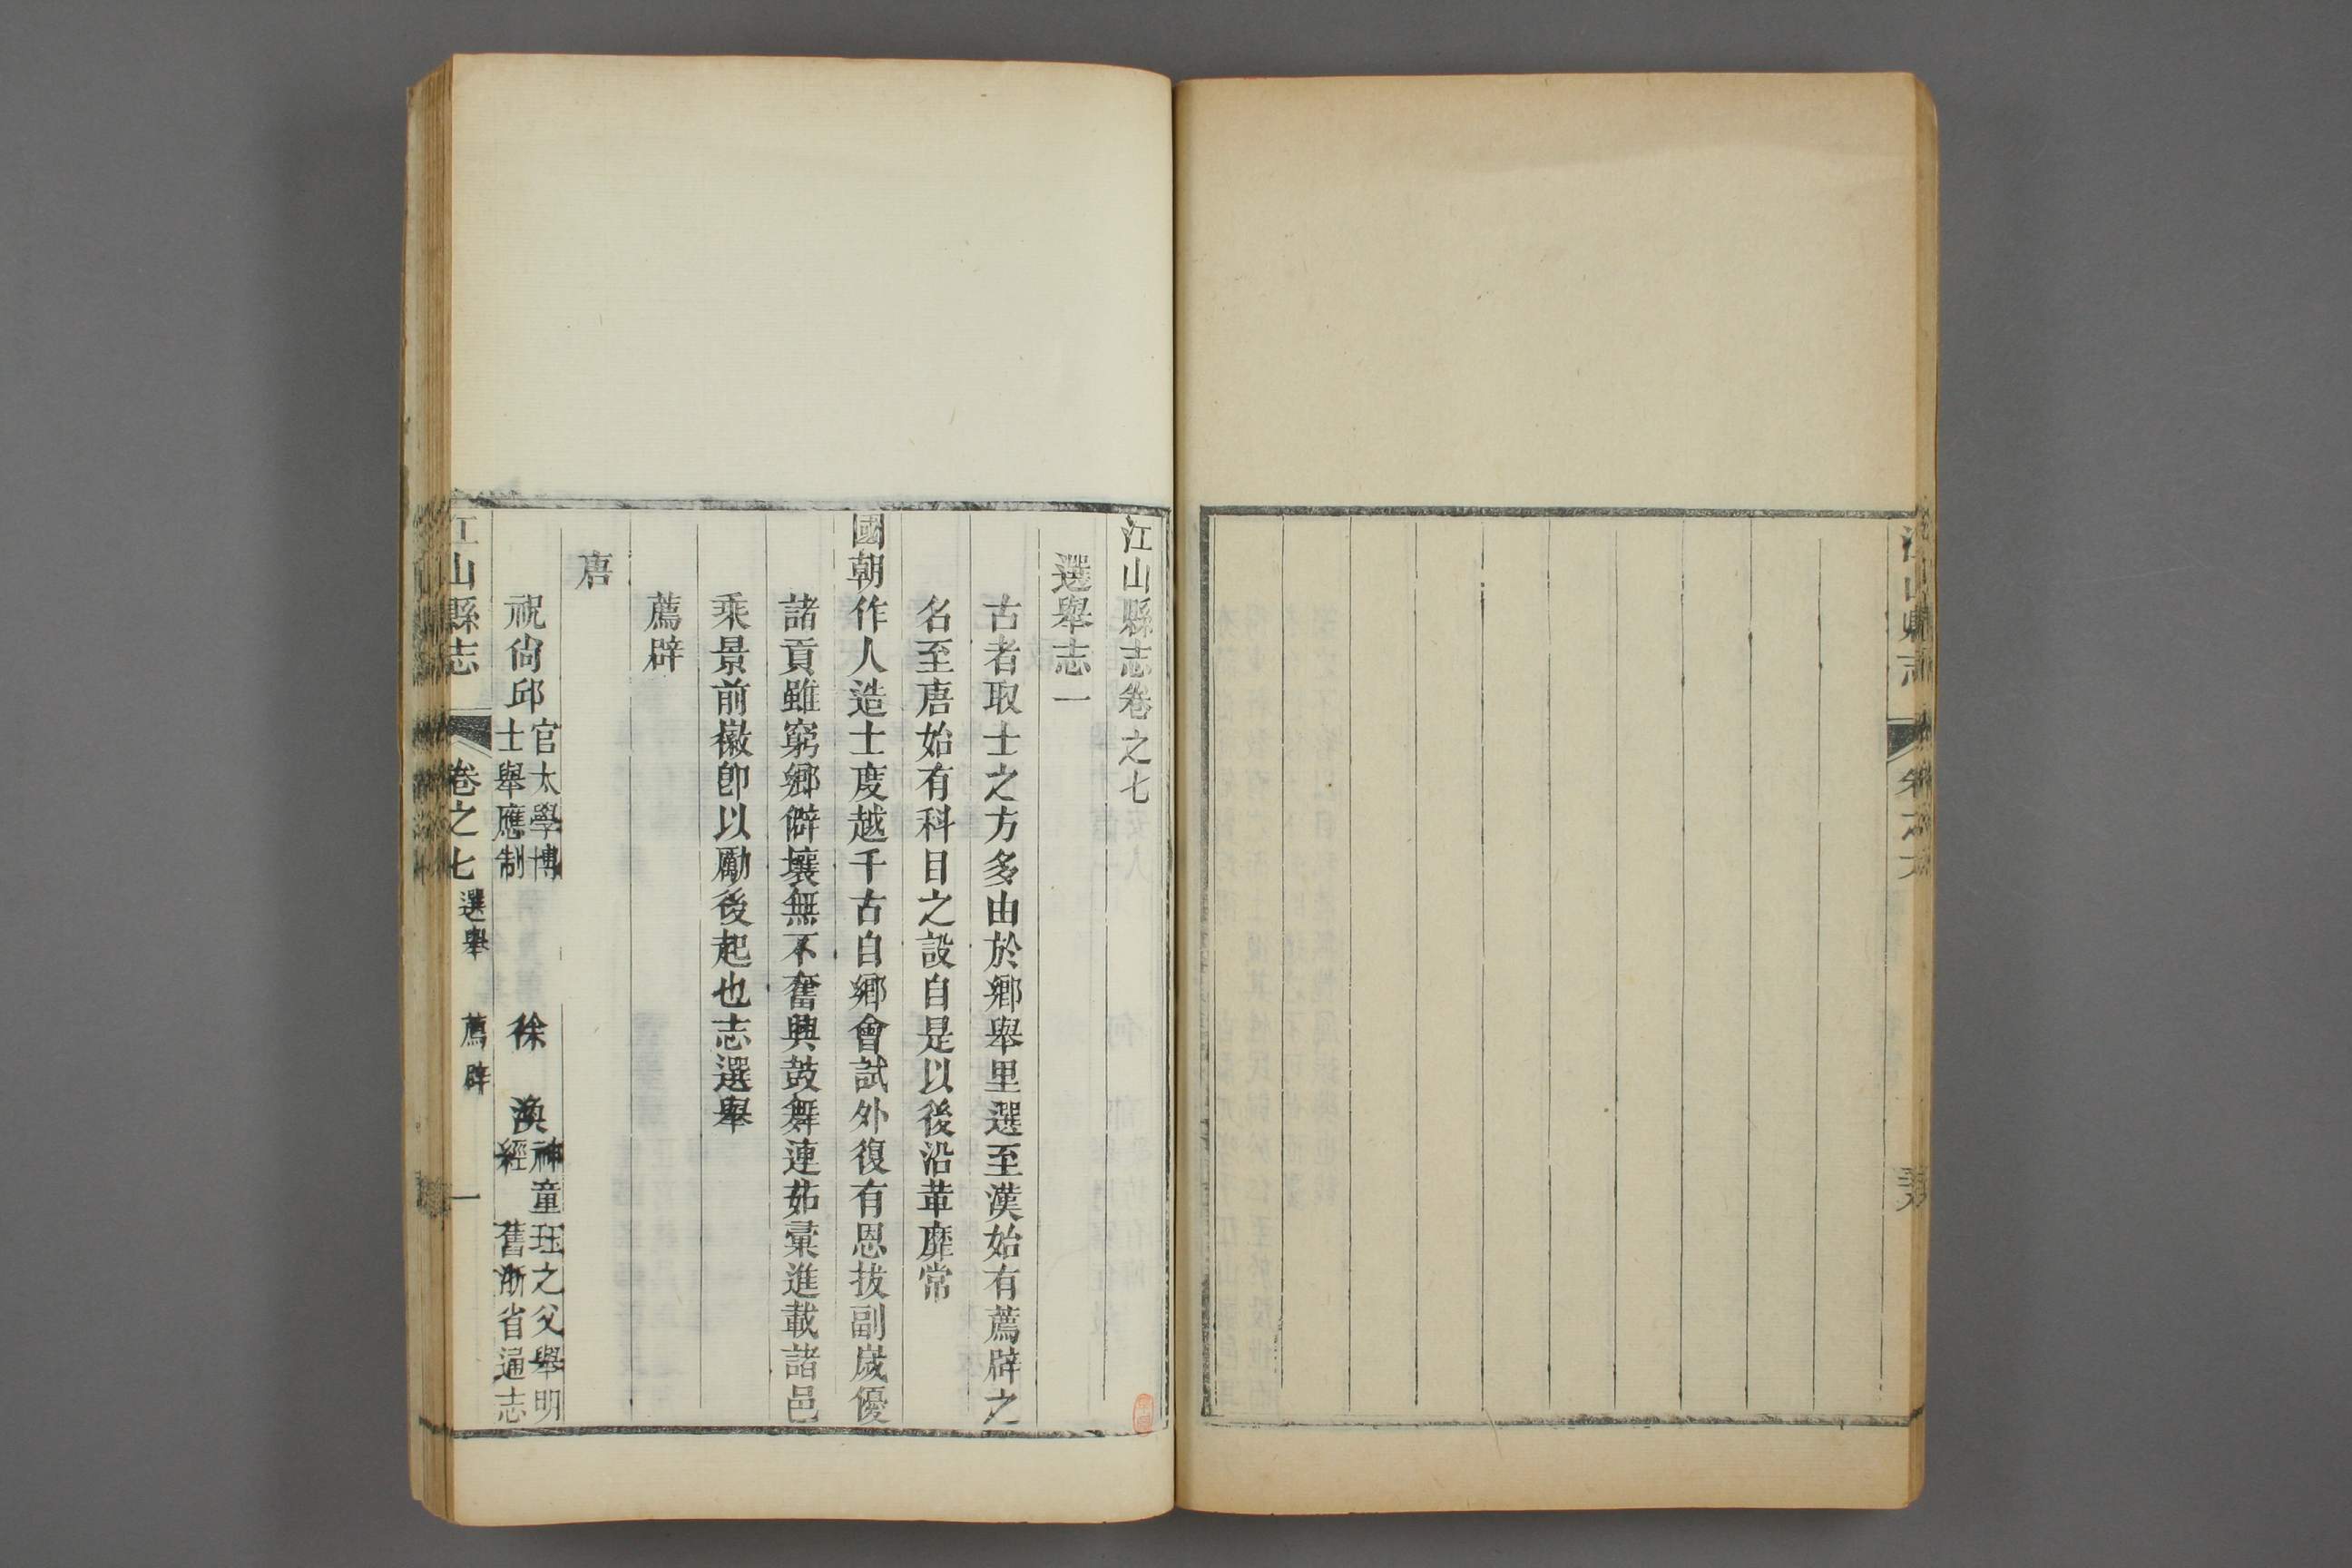 江山縣志卷之七
選舉志一
古者取士之方多由於鄉舉里選至漢始有薦辟之
名至唐始有科目之設自是以後沿革靡常
國朝作人造士度越千古自鄉會試外復有恩拔副歲優
諸貢雖窮鄉僻壤無不奮興鼓舞連茹彙進載諸邑
乘景前徽卽以勵後起也志選舉
薦辟
唐
祝尙邱官太學博士舉應制 徐渙神童珏之父舉明經 舊浙省通志
江山縣志 卷之七 選舉 薦辟 一